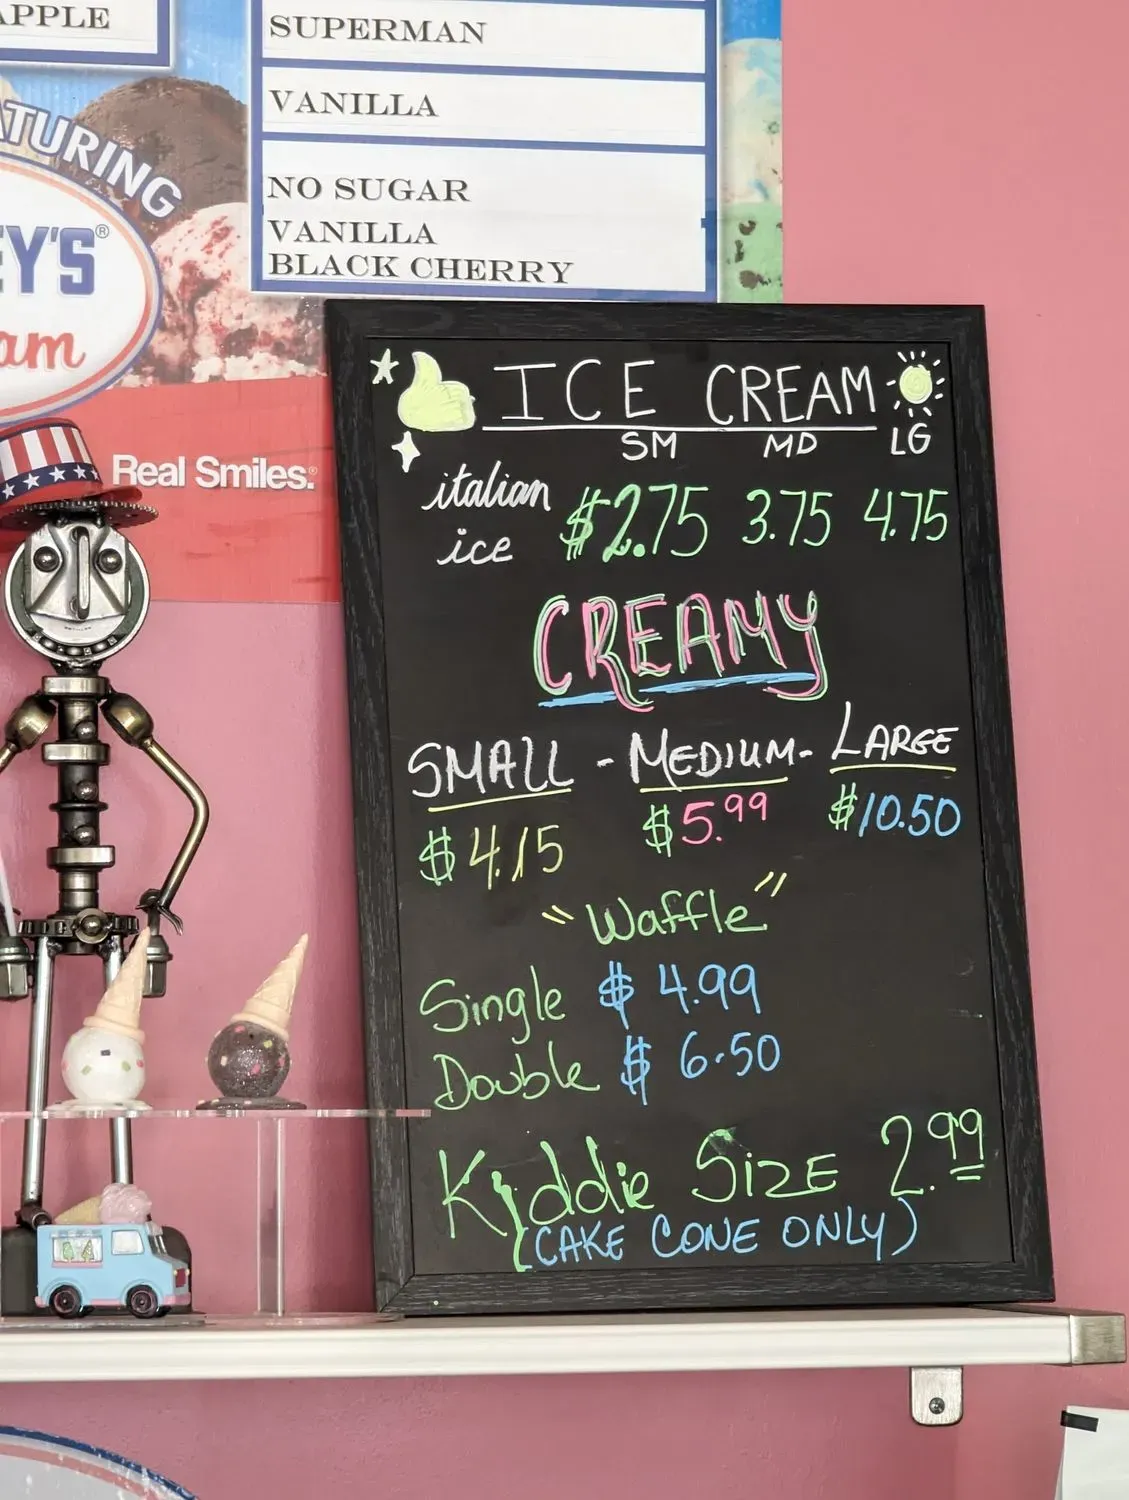 APPLE
SUPERMAN
VANILLA
NO SUGAR
VANILLA
BLACK CHERRY
ATURING
EY'S®
am
Real Smiles.®
ICE CREAM
SM MD LG
italian ice $2.75 3.75 4.75
CREAMY
SMALL - MEDIUM - LARGE
$4.15 $5.99 $10.50
"Waffle"
Single $4.99
Double $6.50
Kiddie SIZE 2.99
(CAKE CONE ONLY)